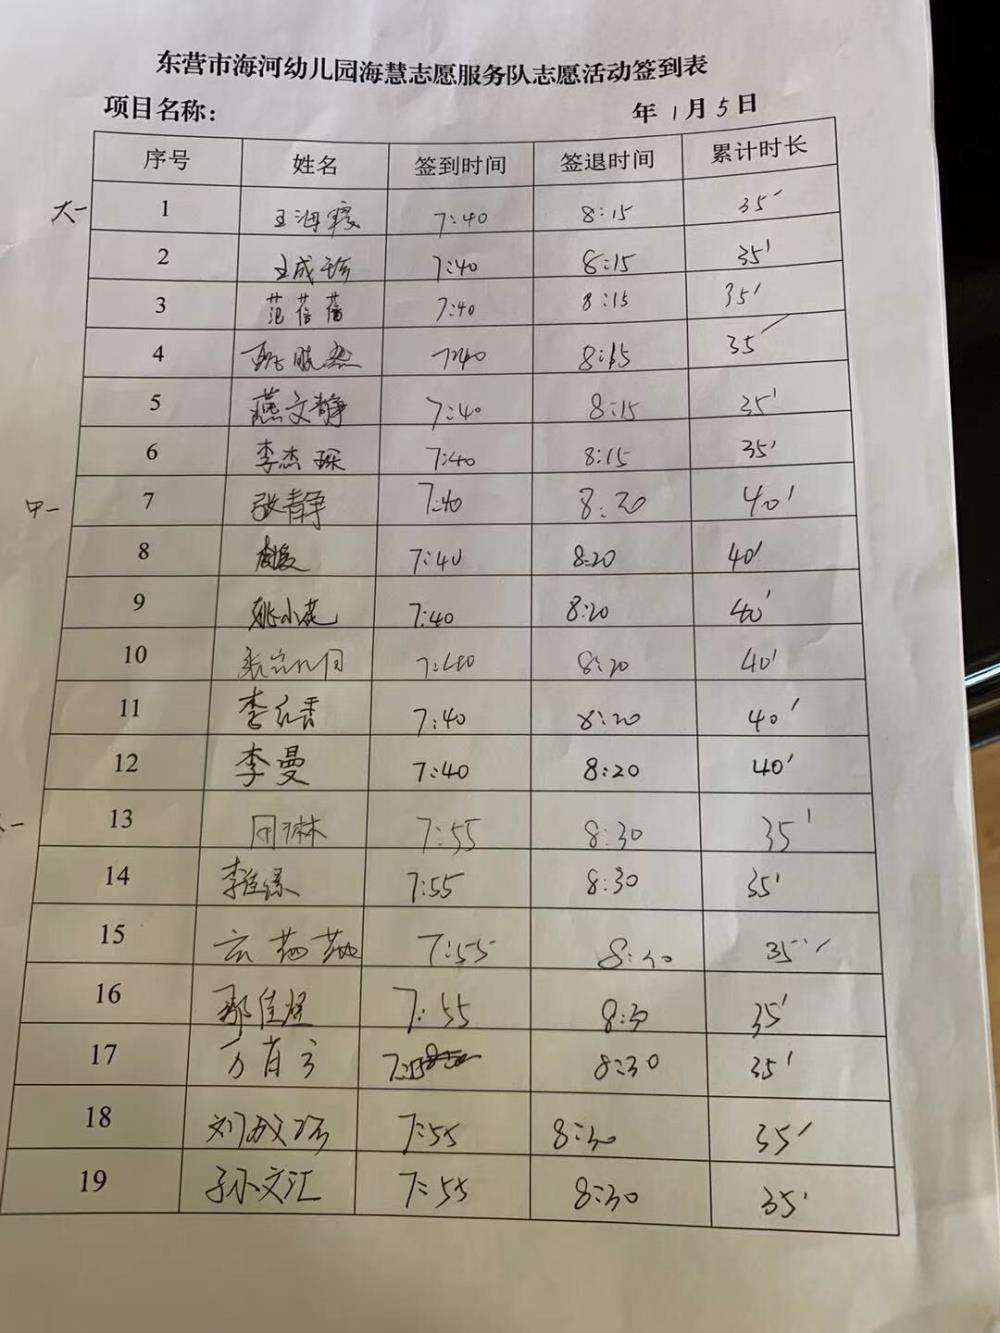 东营市海河幼儿园海慧志愿服务队志愿活动签到表
项目名称： 年 1 月 5 日
序号 姓名 签到时间 签退时间 累计时长
大一 1 王海霞 7:40 8:15 35′
2 王成珍 7:40 8:15 35′
3 范蓓蕾 7:40 8:15 35′
4 7:40 8:15 35′
5 燕文静 7:40 8:15 35′
6 李杰琛 7:40 8:15 35′
中一 7 张静 7:40 8:20 40′
8 7:40 8:20 40′
9 姚小花 7:40 8:20 40′
10 7:40 8:20 40′
11 李红香 7:40 8:20 40′
12 李曼 7:40 8:20 40′
13 周琳 7:55 8:30 35′
14 7:55 8:30 35′
15 7:55 8:30 35′
16 7:55 8:30 35′
17 8:30 35′
18 刘文 7:55 8:30 35′
19 孙文汇 7:55 8:30 35′